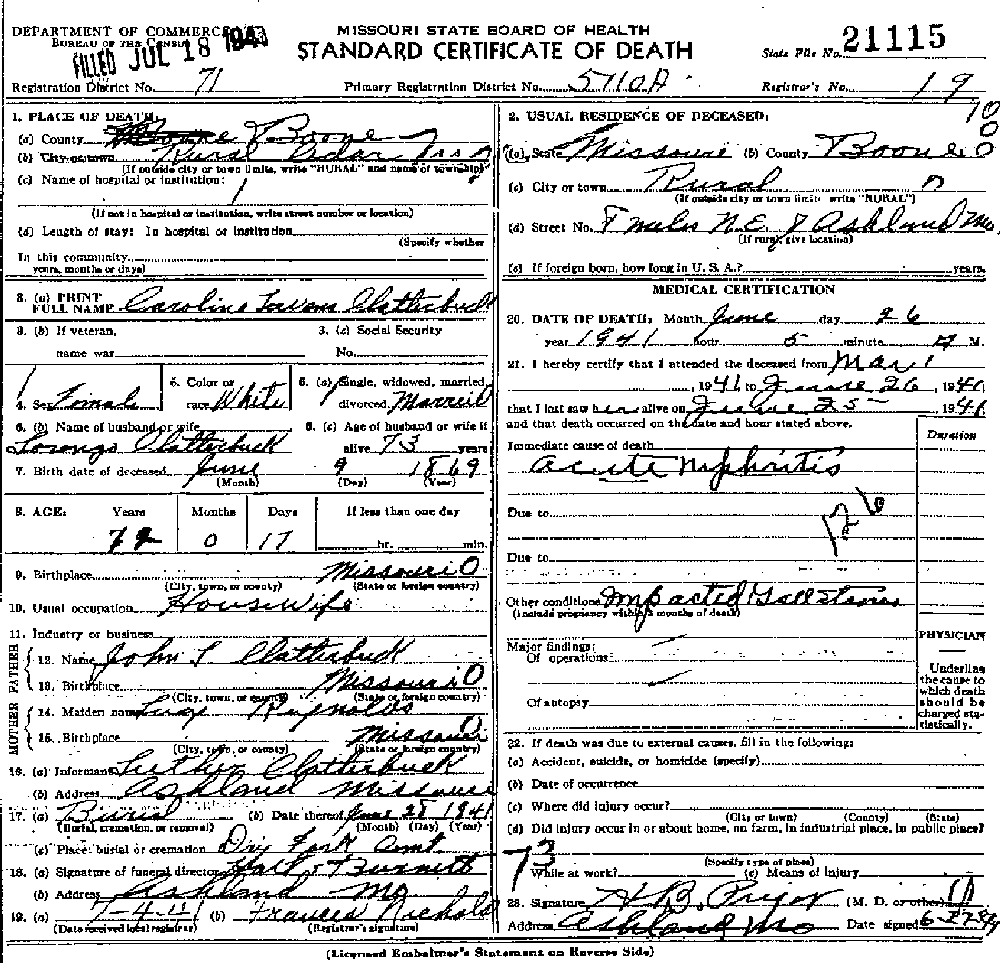 DEPARTMENT OF COMMERCE
BUREAU OF THE CENSUS
FILED JUL 18 1941
MISSOURI STATE BOARD OF HEALTH
STANDARD CERTIFICATE OF DEATH
State File No. 21115
Registration District No. 71
Primary Registration District No. 5710A
Registrar's No. 19
1. PLACE OF DEATH:
(a) County Boone
(b) City or town Rural Cedar Twp
(If outside city or town limits, write "RURAL" and name of township)
(c) Name of hospital or institution:
(If not in hospital or institution, write street number or location)
(d) Length of stay: In hospital or institution
(Specify whether
In this community
years, months or days)
3. (a) PRINT FULL NAME Caroline Clatterbuck
3. (b) If veteran, name war
3. (c) Social Security No.
4. Sex Female
5. Color or race White
6. (a) Single, widowed, married, divorced Married
6. (b) Name of husband or wife Clatterbuck
6. (c) Age of husband or wife if alive 73 years
7. Birth date of deceased June 9 1869
(Month) (Day) (Year)
8. AGE: Years Months Days If less than one day
72 0 17 hr. min.
9. Birthplace Missouri 0
(City, town, or county) (State or foreign country)
10. Usual occupation Housewife
11. Industry or business
FATHER
12. Name John S Clatterbuck
13. Birthplace Missouri 0
(City, town, or county) (State or foreign country)
MOTHER
14. Maiden name Reynolds
15. Birthplace Missouri
(City, town, or county) (State or foreign country)
16. (a) Informant Luther Clatterbuck
(b) Address Ashland Missouri
17. (a) Burial (b) Date thereof June 28 1941
(Burial, cremation, or removal) (Month) (Day) (Year)
(c) Place: burial or cremation Dry Fork Cemt.
18. (a) Signature of funeral director Burnett
(b) Address Ashland Mo
19. (a) 7-4-41 (b) Frances Nichols
(Date received local registrar) (Registrar's signature)
2. USUAL RESIDENCE OF DECEASED:
(a) State Missouri (b) County Boone
(c) City or town Rural
(If outside city or town limits write "RURAL")
(d) Street No. 8 miles N.E. of Ashland Mo.
(If rural, give location)
(e) If foreign born, how long in U. S. A.? years.
MEDICAL CERTIFICATION
20. DATE OF DEATH: Month June day 26
year 1941 hour 5 minute M.
21. I hereby certify that I attended the deceased from Mar 1
, 1941 to June 26, 1941
that I last saw her alive on June 25 1941
and that death occurred on the date and hour stated above.
Duration
Immediate cause of death
acute nephritis
Due to
Due to
Other conditions Impacted Gallstones
(Include pregnancy within 3 months of death)
Major findings:
Of operations
Of autopsy
PHYSICIAN
Underline the cause to which death should be charged statistically.
22. If death was due to external causes, fill in the following:
(a) Accident, suicide, or homicide (specify)
(b) Date of occurrence
(c) Where did injury occur?
(City or town) (County) (State)
(d) Did injury occur in or about home, on farm, in industrial place, in public place?
73
(Specify type of place)
While at work? (e) Means of injury
23. Signature (M. D. or other)
Address Ashland Mo Date signed 6-27-41
(Licensed Embalmer's Statement on Reverse Side)